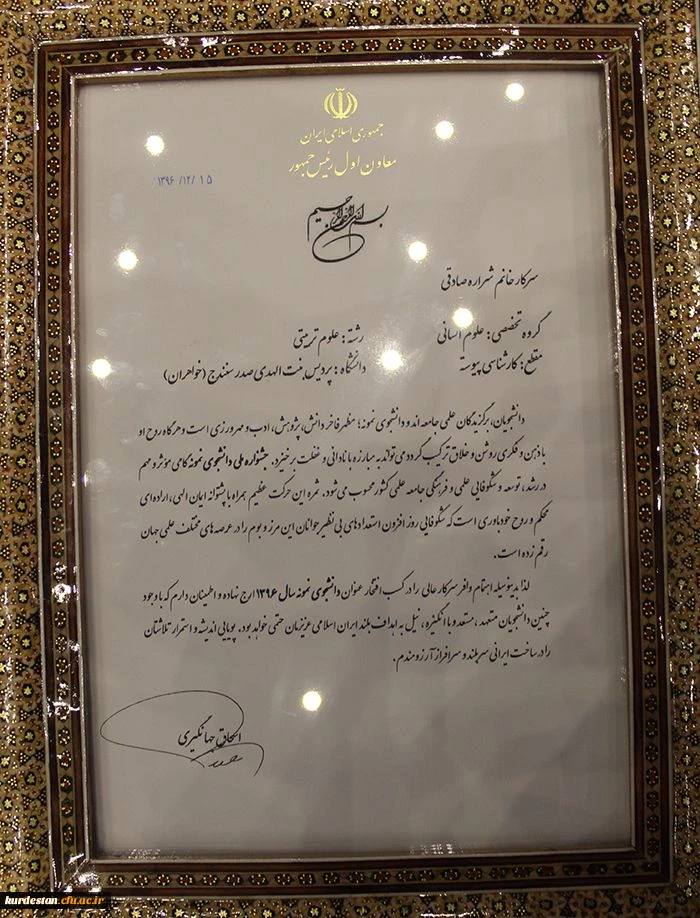 جمهوری اسلامی ایران
معاون اول رئیس جمهور
۱۳۹۶/۱۲/۱۵
بسم الله الرحمن الرحیم
سرکار خانم شراره صادقی
گروه تخصصی: علوم انسانی رشته: علوم تربیتی
مقطع: کارشناسی پیوسته دانشگاه: پردیس بنت الهدی صدر سنندج (خواهران)
دانشجویان، برگزیدگان علمی جامعه اند و دانشجوی نمونه؛ مظهر فاخر دانش، پژوهش، ادب و مهرورزی است و هرگاه روح او
با ذهن و فکری روشن و خلاق ترکیب گردد می تواند به مبارزه با نادانی و غفلت برخیزد. جشنواره ملی دانشجوی نمونه گامی مؤثر و مهم
در رشد، توسعه و شکوفایی علمی و فرهنگی جامعه علمی کشور محسوب می شود. ثمره این حرکت عظیم همراه با پشتوانه ایمان الهی، اراده ای
محکم و روح خودباوری است که شکوفایی روز افزون استعدادهای بی نظیر جوانان این مرز و بوم را در عرصه های مختلف علمی جهان
رقم زده است.
لذا بدینوسیله اهتمام وافر سرکار عالی را در کسب افتخار عنوان دانشجوی نمونه سال ۱۳۹۶ ارج نهاده و اطمینان دارم که با وجود
چنین دانشجویان متعهد، مستعد و با انگیزه، نیل به اهداف بلند ایران اسلامی عزیزمان حتمی خواهد بود. پویایی اندیشه و استمرار تلاشتان
را در ساخت ایرانی سربلند و سرافراز آرزومندم.
اسحاق جهانگیری
kurdestan.cfu.ac.ir